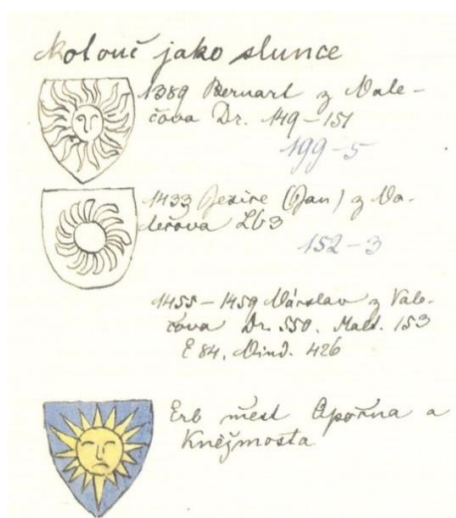 Kotouč jako slunce
1389 Bernart z Vale-
čova Dr. 149-151
199-5
1433 (Jan) z Va-
lečova Lb3
152-3
1455-1459 Vácslav z Vale-
čova Dr. 550. 153
E 84. 426
Erb měst Úpořina a
Kněžmosta